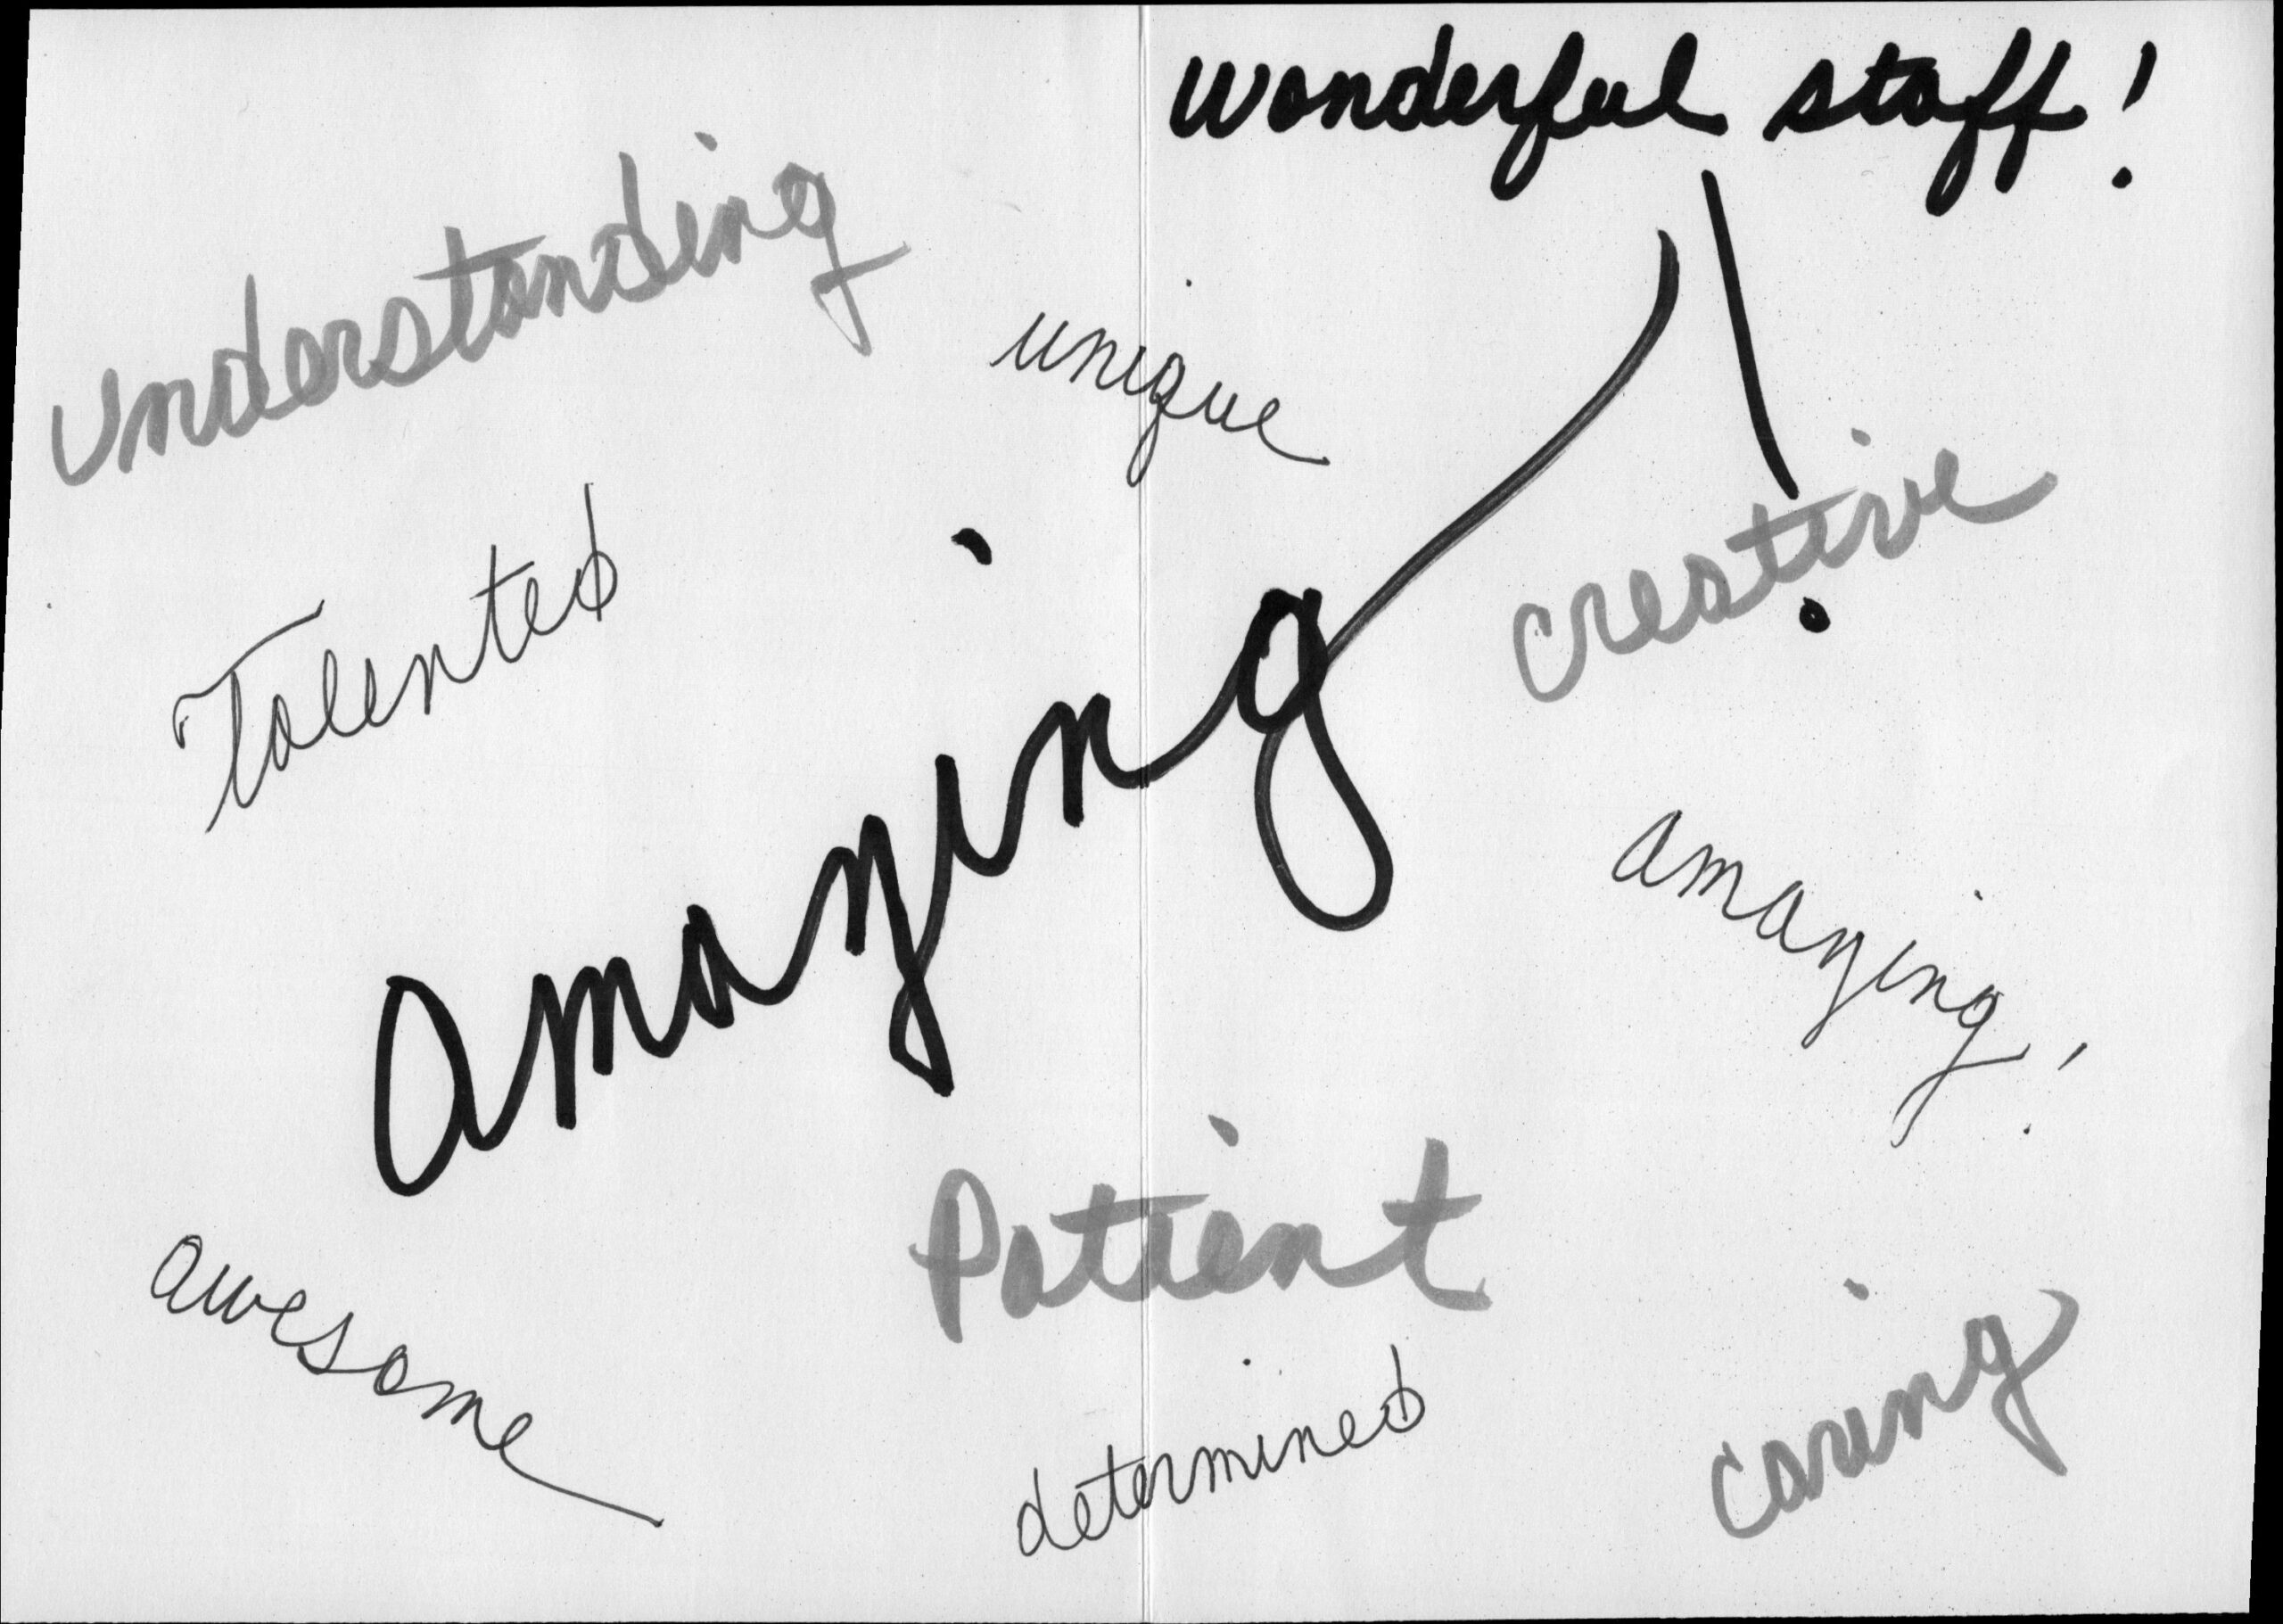 wonderful staff!
understanding
unique
Talented
creative
amazing!
amazing!
Patient
awesome
determined
caring